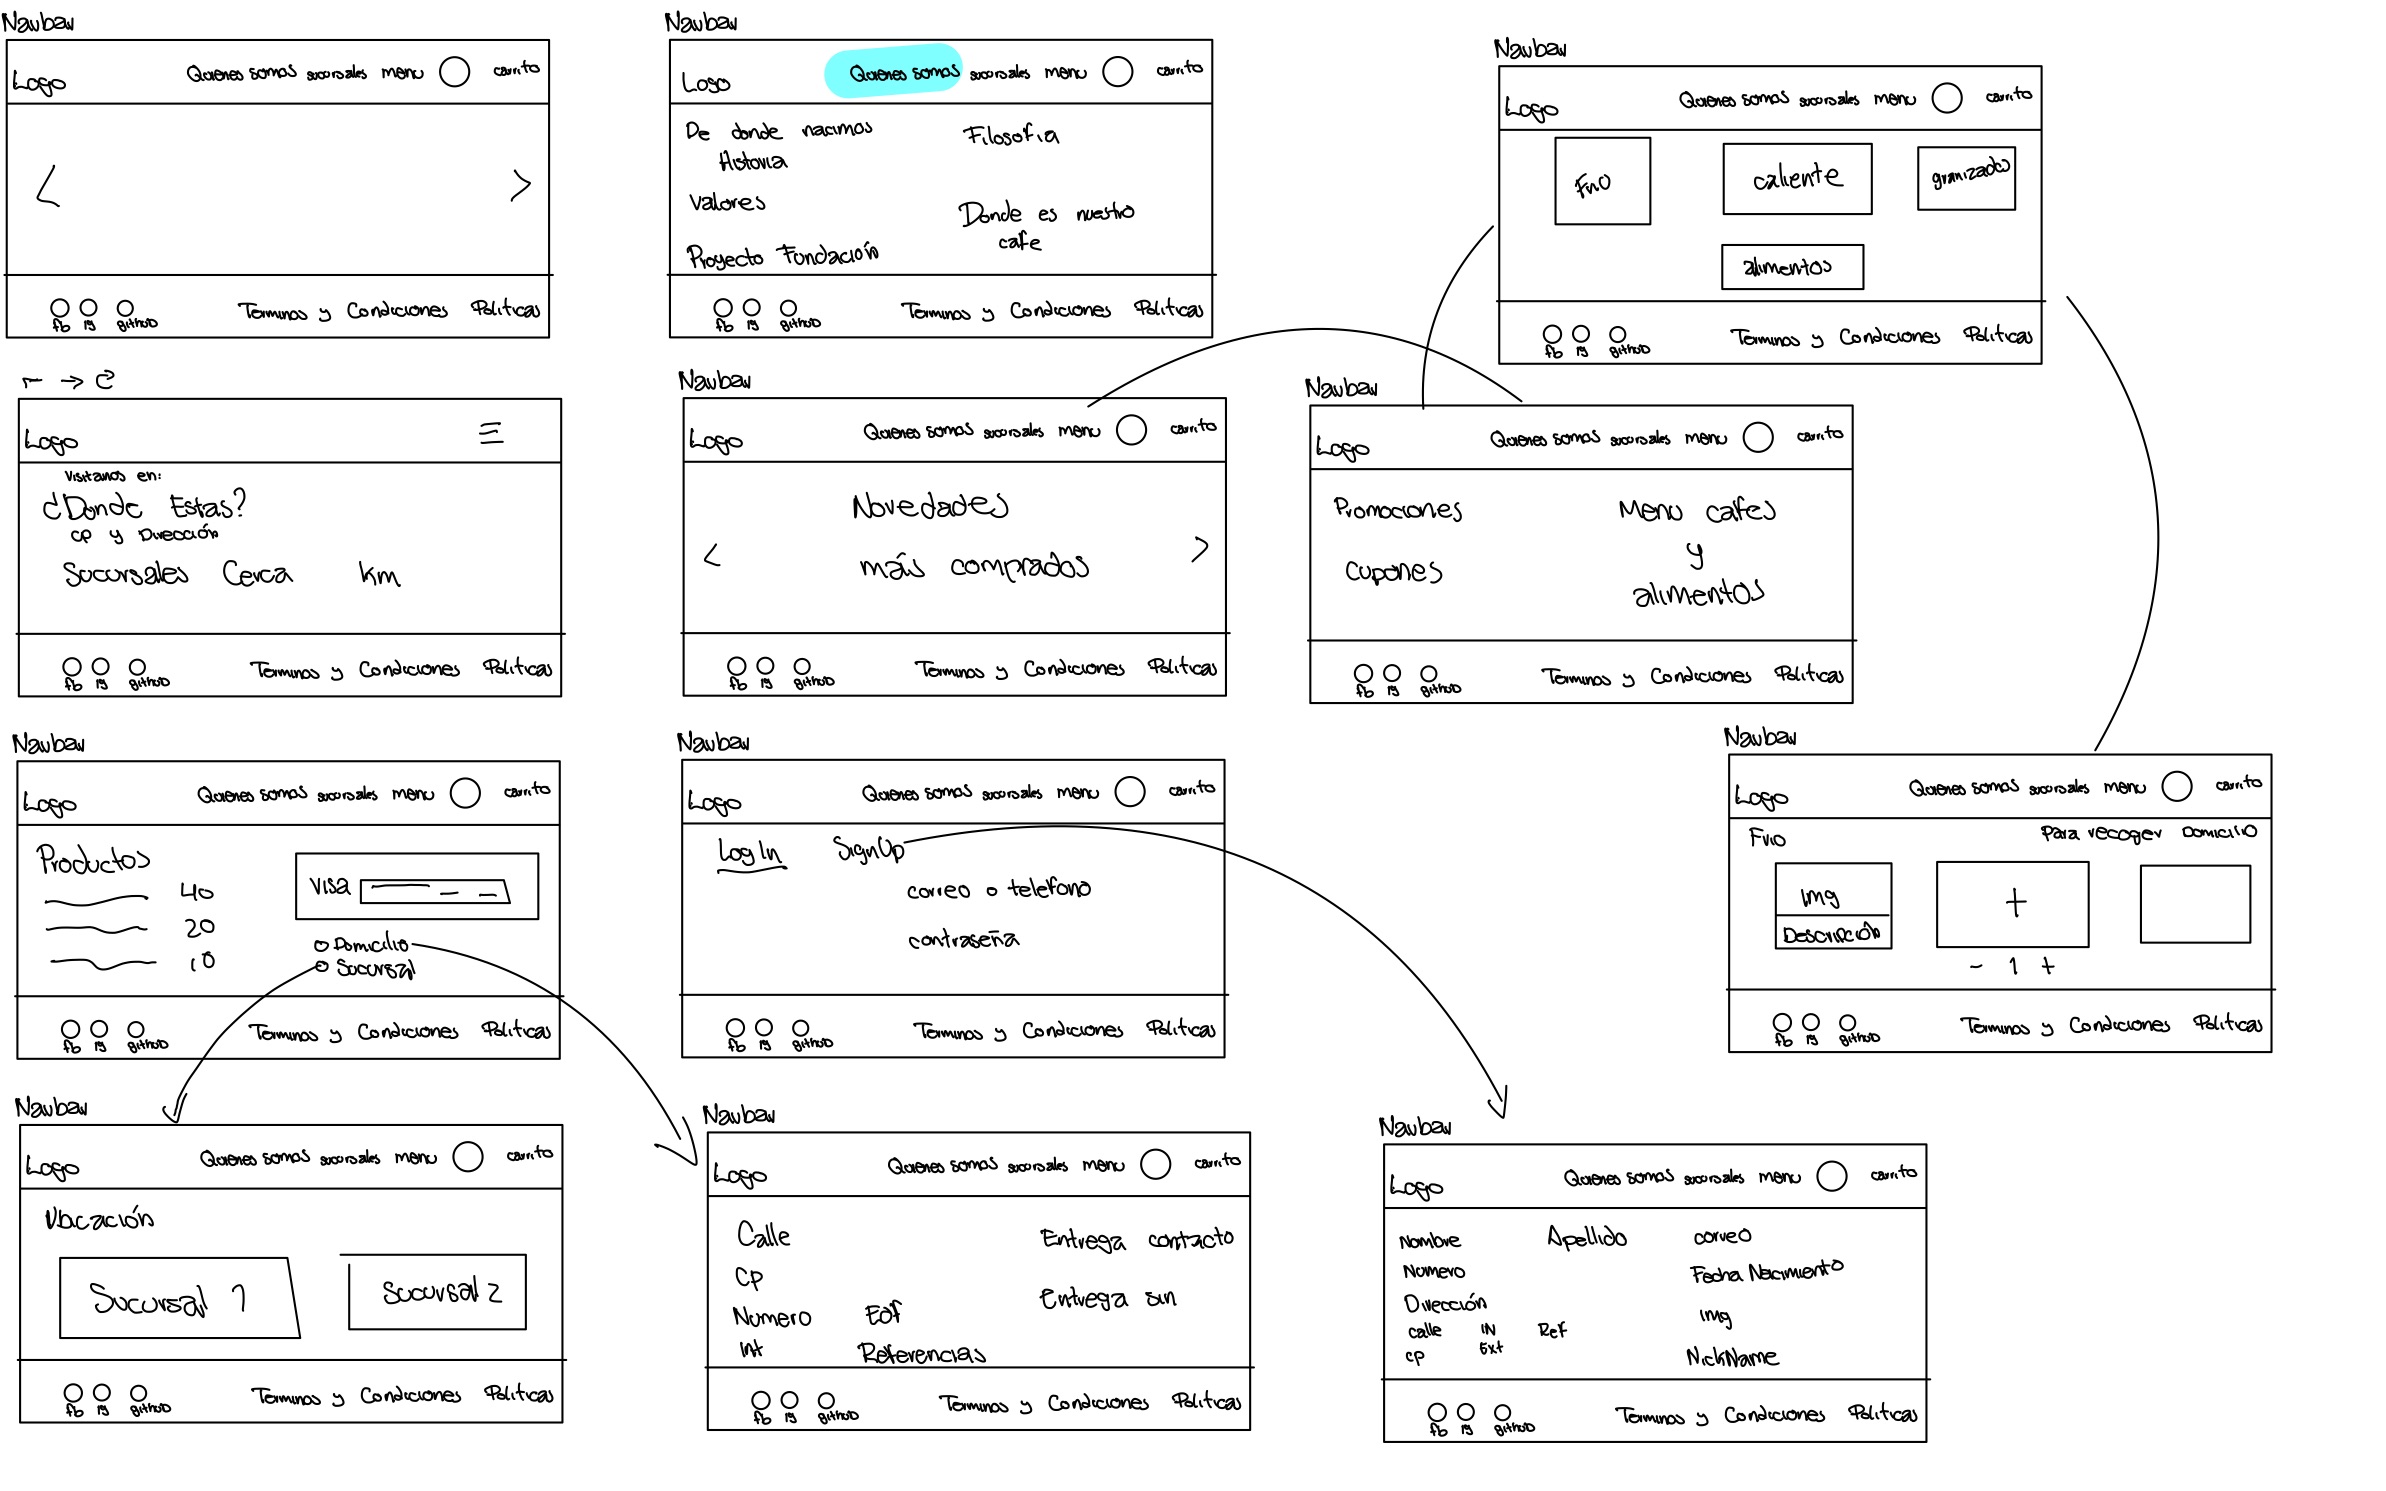 Navbar
Logo
Quienes somos sucursales menu carrito
< >
fb ig github
Terminos y Condiciones Politicas
Navbar
Logo
Quienes somos sucursales menu carrito
De donde nacimos
Historia
Filosofia
Valores
Donde es nuestro
cafe
Proyecto Fundación
fb ig github
Terminos y Condiciones Politicas
Navbar
Logo
Quienes somos sucursales menu carrito
Frio
caliente
granizado
alimentos
fb ig github
Terminos y Condiciones Politicas
Logo
Visitanos en:
¿Donde Estas?
cp y Dirección
Sucursales Cerca km
fb ig github
Terminos y Condiciones Politicas
Navbar
Logo
Quienes somos sucursales menu carrito
Novedades
< más comprados >
fb ig github
Terminos y Condiciones Politicas
Navbar
Logo
Quienes somos sucursales menu carrito
Promociones
Cupones
Menu cafes
y
alimentos
fb ig github
Terminos y Condiciones Politicas
Navbar
Logo
Quienes somos sucursales menu carrito
Productos
40
20
10
Visa
Domicilio
Sucursal
fb ig github
Terminos y Condiciones Politicas
Navbar
Logo
Quienes somos sucursales menu carrito
Log In
SignUp
correo o telefono
contraseña
fb ig github
Terminos y Condiciones Politicas
Navbar
Logo
Quienes somos sucursales menu carrito
Frio
Para recoger Domicilio
Img
Descripción
+
- 1 +
fb ig github
Terminos y Condiciones Politicas
Navbar
Logo
Quienes somos sucursales menu carrito
Ubicación
Sucursal 1
Sucursal 2
fb ig github
Terminos y Condiciones Politicas
Navbar
Logo
Quienes somos sucursales menu carrito
Calle
Cp
Numero Edf
Int Referencias
Entrega contacto
Entrega sin
fb ig github
Terminos y Condiciones Politicas
Navbar
Logo
Quienes somos sucursales menu carrito
Nombre Apellido correo
Numero
Fecha Nacimiento
Dirección
calle IN Ref
cp Ext
img
NickName
fb ig github
Terminos y Condiciones Politicas